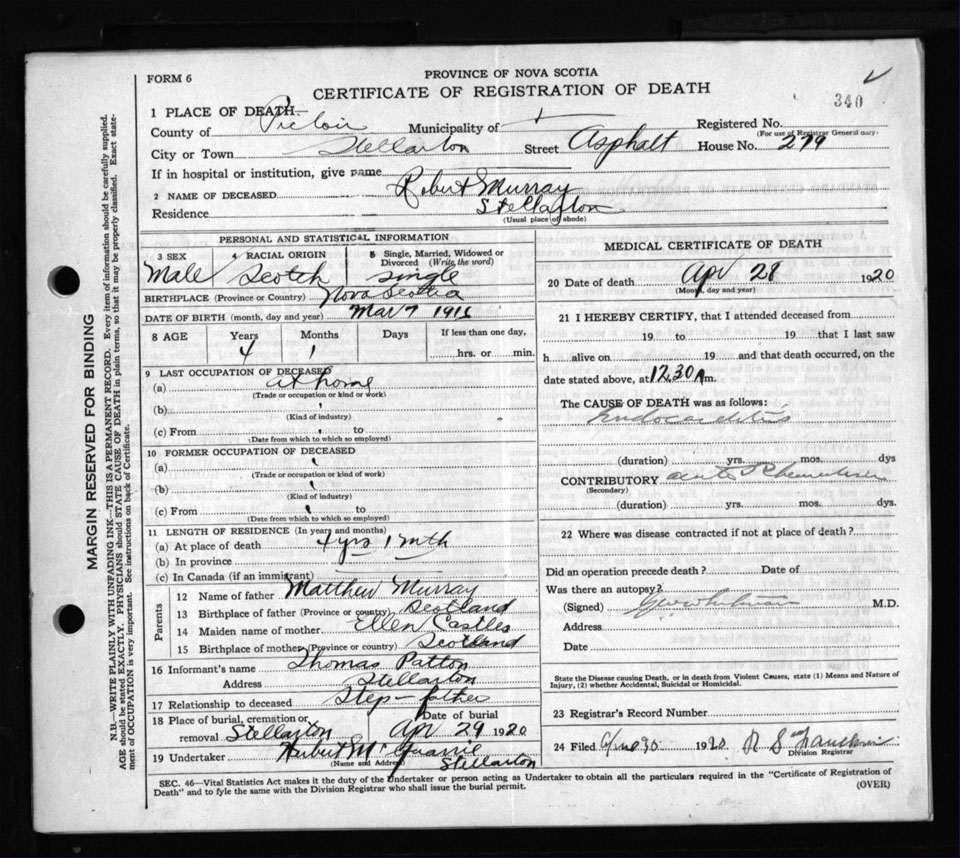 PROVINCE OF NOVA SCOTIA
FORM 6
CERTIFICATE OF REGISTRATION OF DEATH
340
1 PLACE OF DEATH
County of Pictou Municipality of Registered No.
(For use of Registrar General only)
City or Town Stellarton Street Asphalt House No. 279
If in hospital or institution, give name
2 NAME OF DECEASED Robert Murray
Residence Stellarton
(Usual place of abode)
PERSONAL AND STATISTICAL INFORMATION
3 SEX Male
4 RACIAL ORIGIN Scotch
5 Single, Married, Widowed or Divorced (Write the word) single
BIRTHPLACE (Province or Country) Nova Scotia
DATE OF BIRTH (month, day and year) Mar 7 1916
8 AGE Years Months Days If less than one day,
4 1 hrs. or min.
9 LAST OCCUPATION OF DECEASED
(a) at home
(Trade or occupation or kind or work)
(b)
(Kind of industry)
(c) From to
(Date from which to which so employed)
10 FORMER OCCUPATION OF DECEASED
(a)
(Trade or occupation or kind of work)
(b)
(Kind of industry)
(c) From to
(Date from which to which so employed)
11 LENGTH OF RESIDENCE (In years and months)
(a) At place of death 4 yrs 1 mth
(b) In province
(c) In Canada (if an immigrant)
Parents
12 Name of father Matthew Murray
13 Birthplace of father (Province or country) Scotland
14 Maiden name of mother Ellen Castles
15 Birthplace of mother (Province or country) Scotland
16 Informant's name Thomas Patton
Address Stellarton
17 Relationship to deceased Step-father
18 Place of burial, cremation or removal Stellarton Date of burial Apr 29 1920
19 Undertaker Hubert McQuarrie
(Name and Address) Stellarton
MEDICAL CERTIFICATE OF DEATH
20 Date of death Apr 28 1920
(Month, day and year)
21 I HEREBY CERTIFY, that I attended deceased from
19 to 19 that I last saw
h alive on 19 and that death occurred, on the
date stated above, at 12.30 A m.
The CAUSE OF DEATH was as follows:
Endocarditis
(duration) yrs. mos. dys
CONTRIBUTORY acute Rheumatism
(Secondary)
(duration) yrs. mos. dys.
22 Where was disease contracted if not at place of death?
Did an operation precede death? Date of
Was there an autopsy?
(Signed) M.D.
Address
Date
State the Disease causing Death, or in death from Violent Causes, state (1) Means and Nature of
Injury, (2) whether Accidental, Suicidal or Homicidal.
23 Registrar's Record Number
24 Filed 30 1920
Division Registrar
SEC. 46—Vital Statistics Act makes it the duty of the Undertaker or person acting as Undertaker to obtain all the particulars required in the "Certificate of Registration of
Death" and to fyle the same with the Division Registrar who shall issue the burial permit.
(OVER)
MARGIN RESERVED FOR BINDING
N.B.—WRITE PLAINLY WITH UNFADING INK—THIS IS A PERMANENT RECORD. Every item of information should be carefully supplied.
AGE should be stated EXACTLY. PHYSICIANS should STATE CAUSE OF DEATH in plain terms, so that it may be properly classified. Exact state-
ment of OCCUPATION is very important. See instructions on back of Certificate.